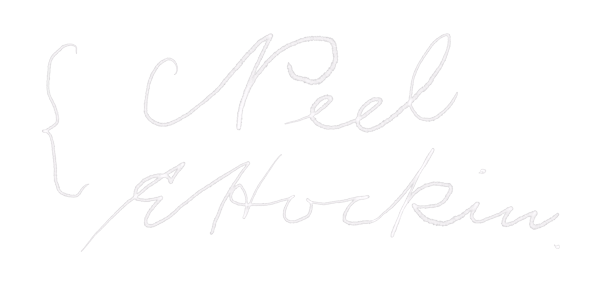 Peel
E Hockin